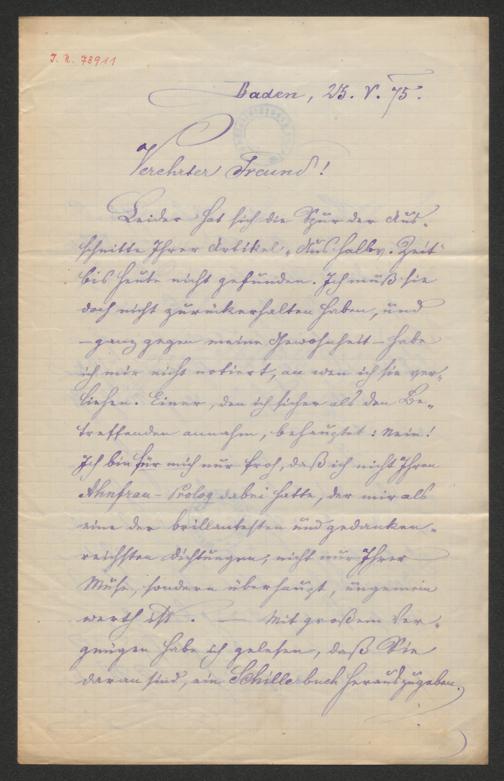 I. N. 78911
Baden, 25. V. 75.
Verehrter Freund!
Leider hat sich die Spur der Aus-
schnitte Ihrer Artikel „Aus halbv. Zeit"
bis heute nicht gefunden. Ich muß sie
doch nicht zurückerhalten haben, und
– ganz gegen meine Gewohnheit – habe
ich mir nicht notiert, an wen ich sie ver-
liehen. Einer, den ich sicher als den Be-
treffenden annahm, behauptet: Nein!
Ich bin für mich nur froh, daß ich nicht Ihren
Ahnfrau-Prolog dabei hatte, der mir als
eine der brillantesten und gedanken-
reichsten Dichtungen, nicht nur Ihrer
Muse, sondern überhaupt, ungemein
werth ist. – Mit großem Ver-
gnügen habe ich gelesen, daß Sie
daran sind, ein Schillerbuch herauszugeben.